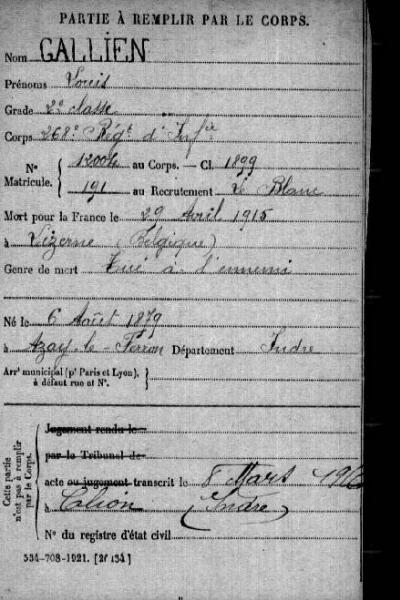 PARTIE À REMPLIR PAR LE CORPS.
Nom GALLIEN
Prénoms Louis
Grade 2e classe
Corps 268e Régt d'Infie
No Matricule. { 12004 au Corps. — Cl. 1899
191 au Recrutement Le Blanc
Mort pour la France le 29 Avril 1915
à Lizerne (Belgique)
Genre de mort Tué à l'ennemi
Né le 6 Août 1879
à Azay-le-Ferron Département Indre
Arrt municipal (pr Paris et Lyon), à défaut rue et No. }
Cette partie n'est pas à remplir par le Corps.
Jugement rendu le
par le Tribunal de
acte ou jugement transcrit le 8 Mars
à (Indre)
No du registre d'état civil
534-708-1921. [26434]